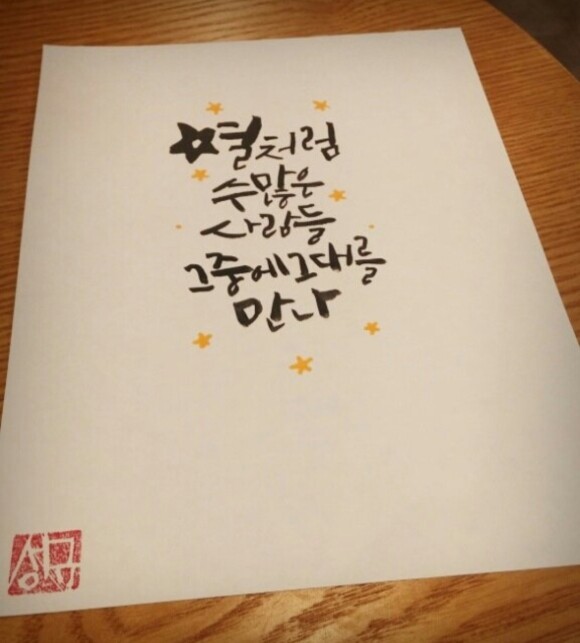 별처럼
수많은
사람들
그중에그대를
만나